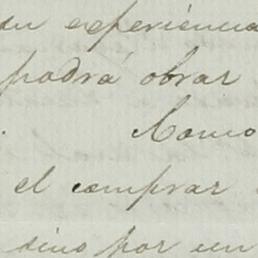 su experiencia
podrá obrar
. Como
el comprar
sino por un